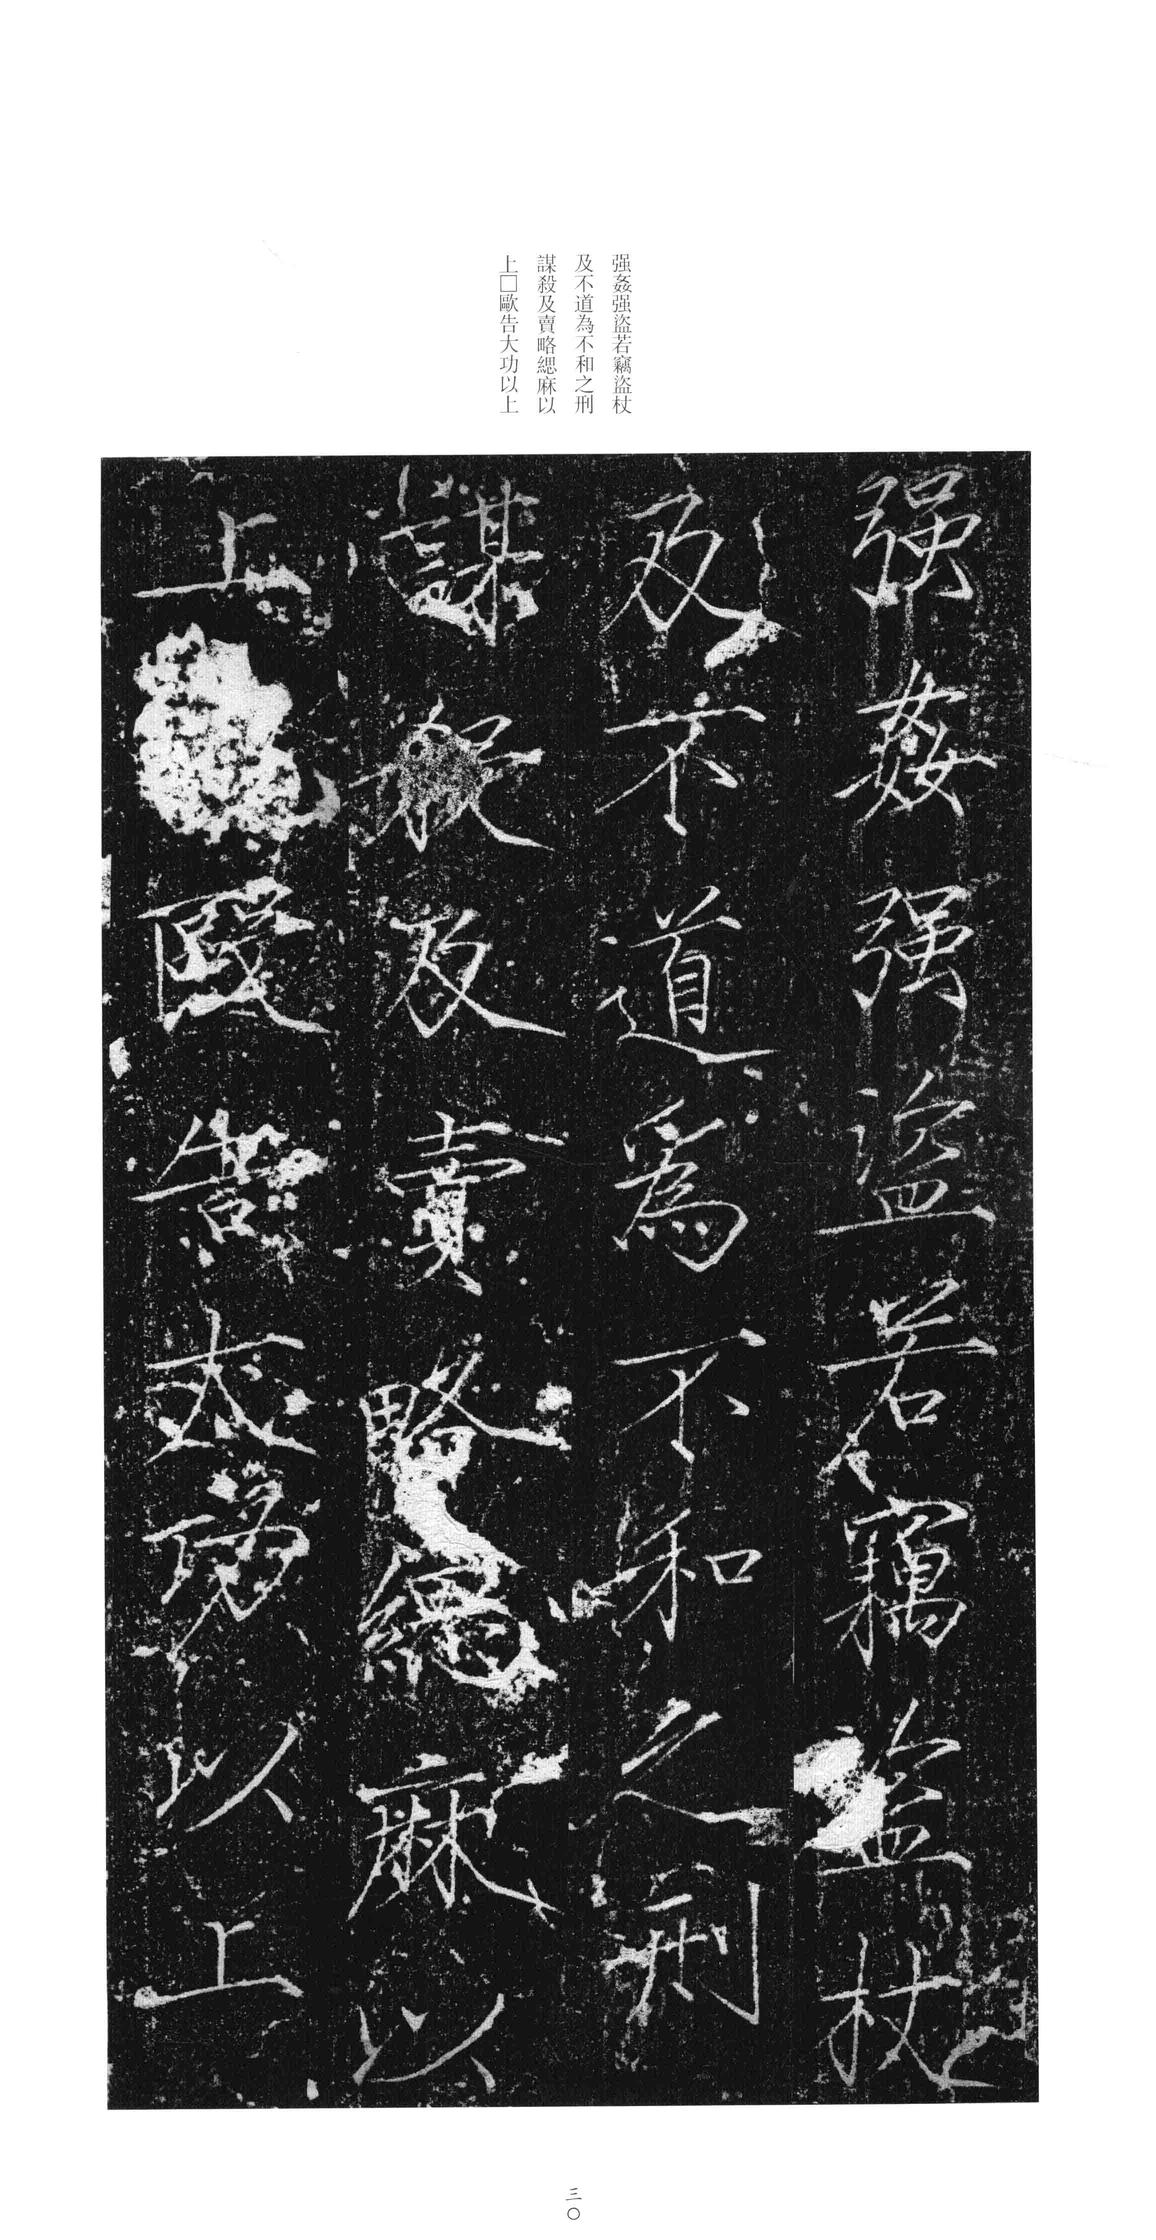 强姦强盜若竊盜杖
及不道為不和之刑
謀殺及賣略緦麻以
上□歐告大功以上
强姦强盜若竊盜杖
及不道為不和之刑
謀殺及賣略緦麻以
上毆告大功以上
三〇